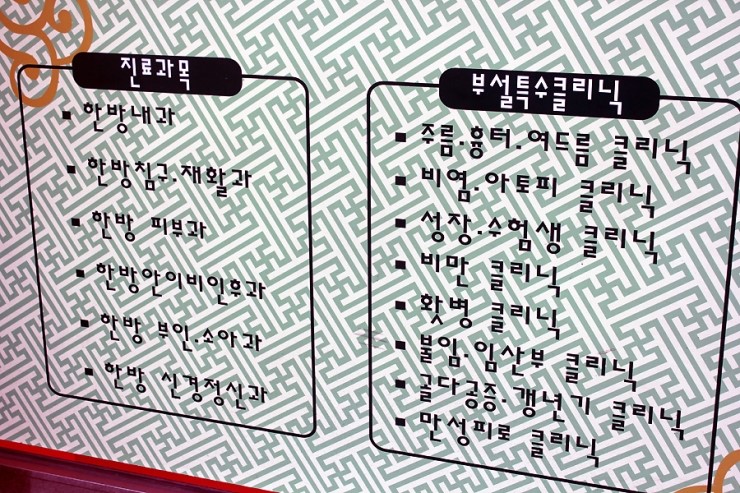 진료과목
▪ 한방내과
▪ 한방침구.재활과
▪ 한방 피부과
▪ 한방안이비인후과
▪ 한방 부인.소아과
▪ 한방 신경정신과
부설특수클리닉
▪ 주름.흉터.여드름 클리닉
▪ 비염.아토피 클리닉
▪ 성장.수험생 클리닉
▪ 비만 클리닉
▪ 홧병 클리닉
▪ 불임.임산부 클리닉
▪ 골다공증.갱년기 클리닉
▪ 만성피로 클리닉